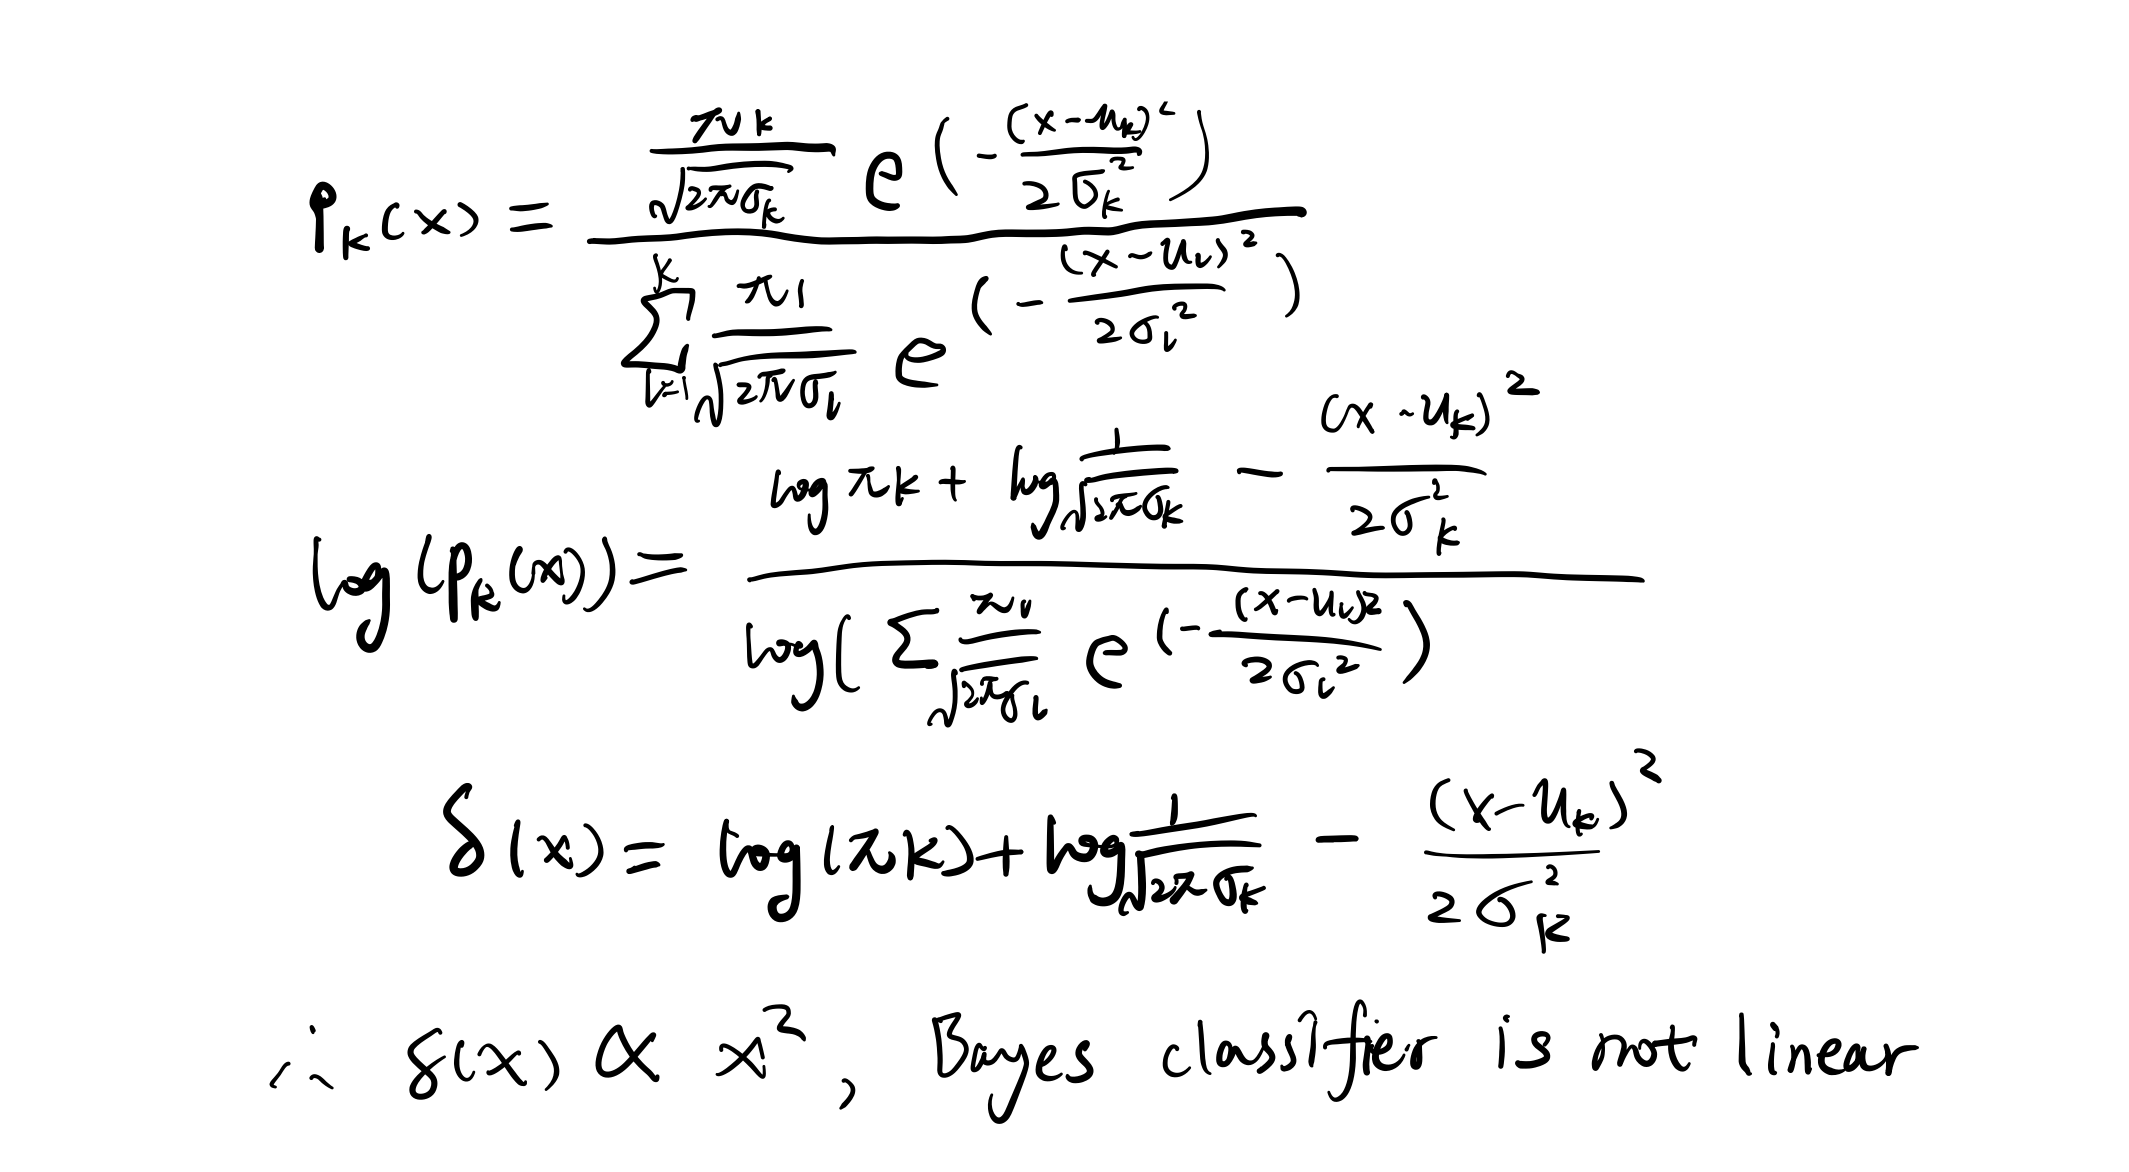 $p_k(x) = \frac{\frac{\pi k}{\sqrt{2\pi\sigma_k}} e^{\left(-\frac{(x-u_k)^2}{2\sigma_k^2}\right)}}{\sum_{l=1}^{k} \frac{\pi l}{\sqrt{2\pi\sigma_l}} e^{\left(-\frac{(x-u_l)^2}{2\sigma_l^2}\right)}}$
$\log(p_k(x)) = \frac{\log \pi k + \log \frac{1}{\sqrt{2\pi\sigma_k}} - \frac{(x-u_k)^2}{2\sigma_k^2}}{\log\left(\sum \frac{\pi_l}{\sqrt{2\pi\sigma_l}} e^{\left(-\frac{(x-u_l)^2}{2\sigma_l^2}\right)}\right)}$
$\delta(x) = \log(\pi k) + \log \frac{1}{\sqrt{2\pi\sigma_k}} - \frac{(x-u_k)^2}{2\sigma_k^2}$
∴ δ(x) ∝ x², Bayes classifier is not linear